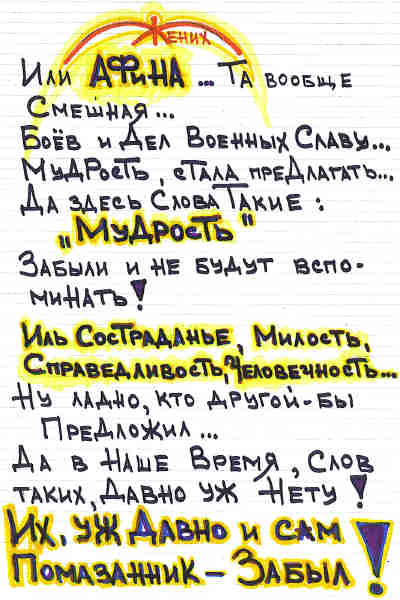 Жених
Или АФиНА... Та вообще
Смешная...
Боёв и Дел Военных Славу...
МуДРость, стала преДлагать...
Да здесь Слова Такие:
„МуДрость"
Забыли и не будут вспо-
минать!
Иль СоСтРаДанье, Милость,
СправеДливость, Человечность...
Ну ладно, кто Другой-бы
ПреДложил...
Да в Наше Время, Слов
таких, Давно уж Нету!
Их, уж Давно и сам
Помазанник - Забыл!